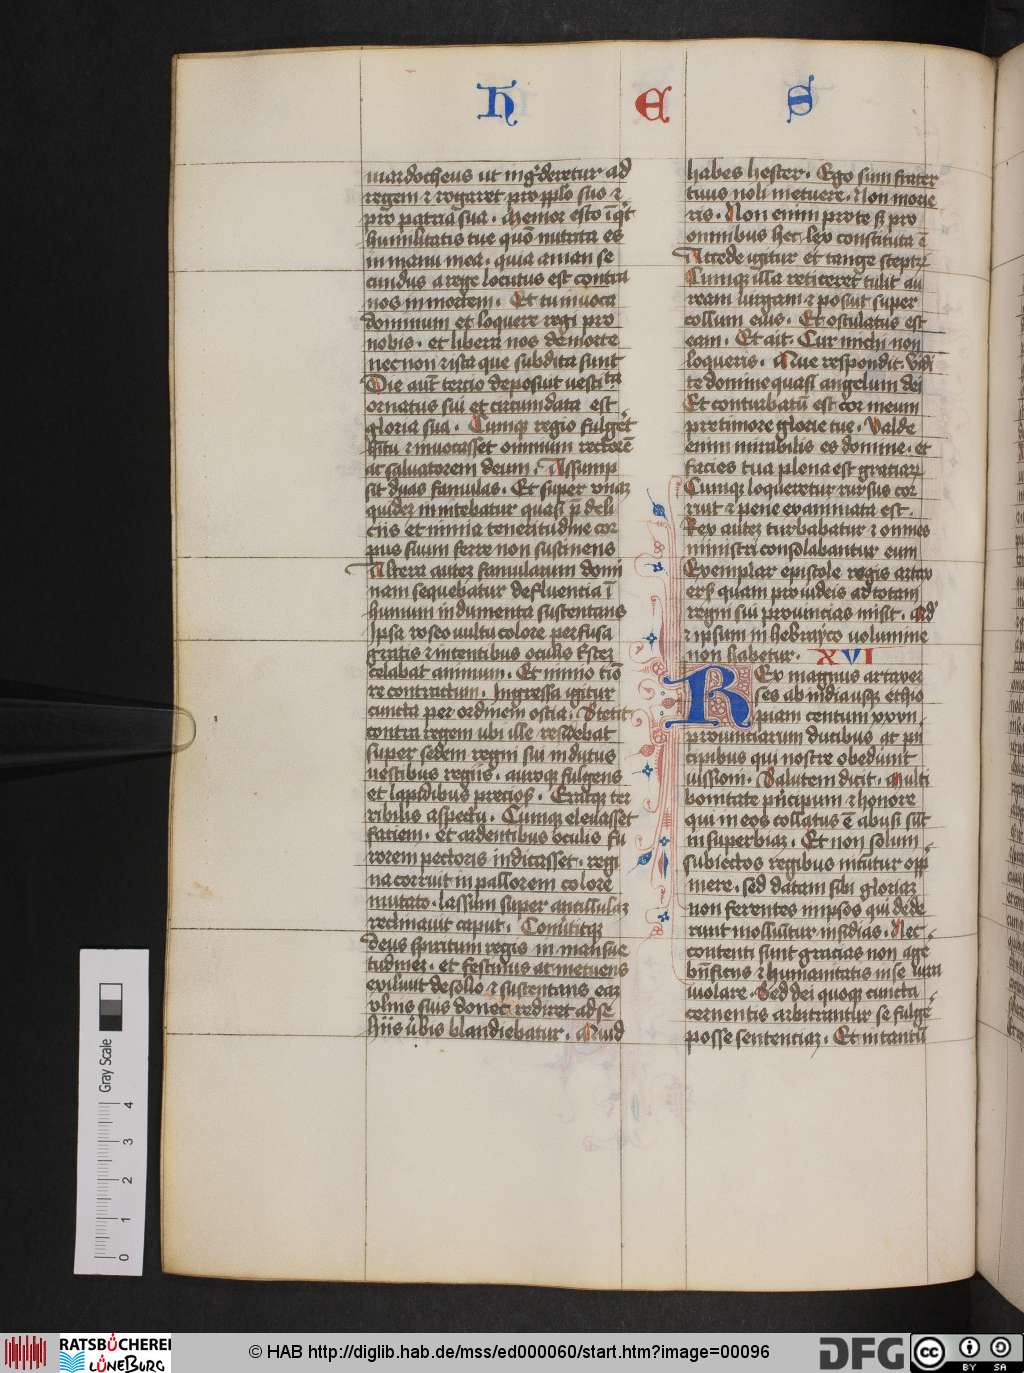 H E S
mardocheus ut ingᵃderetur ad
regem ⁊ rogaret pro pplo suo ⁊
pro patria sua. Memor esto īqͥt
humilitatis tue quō nutrita es
in manu mea. quia aman se
cundus a rege locutus est contra
nos in mortem. Et tu invoca
dominum et loquere regi pro
nobis. et libera nos de morte
nec non ⁊ ista que subdita sunt
Die aut̄ tercio deposuit vestita
ornatus sui et circumdata est
gloria sua. Cumqꝫ regio fulget
hītu ⁊ invocasset omnium rectorē
ac salvatorem deum. Assump
sit duas famulas. Et super unaꝫ
quideꝫ innitebatur quasi p̄ deli
ciis et nimia teneritudine cor
pus suum ferre non sustinens
Altera auteꝫ famularum domi
nam sequebatur defluentia ī
humum indumenta sustentans
Ipsa roseo vultu colore perfusa
gratis ⁊ nitentibus oculis Ester
celabat animum. Et nimio tīo
re contractum. Ingressa igitur
cuncta per ordinem ostia. Stetit
contra regem ubi ille residebat
super sedem regni sui indutus
vestibus regiis. auroqꝫ fulgens
et lapidibus precios. Eratqꝫ ter
ribilis aspectu. Cumqꝫ elevasset
faciem. et ardentibus oculis fu
rorem pectoris indicasset. regi
na corruit in pallorem colore
mutato. lassum super ancillulaꝫ
reclinavit caput. Convertitqꝫ
deus spiritum regis in mansue
tudineꝫ. et festinus ac metuens
exilivit de solio ⁊ sustentans eaꝫ
ulnis suis donec rediret ad se
hiis ūbis blandiebatur. Quid
habes hester. Ego sum frater
tuus noli metuere. Non morie
ris. Non enim pro te sꝫ pro
omnibus hec lex constituta ē
Accede igitur et tange sceptꝝ
Cumqꝫ illa reticeret tulit au
ream virgam ⁊ posuit super
collum eius. Et osculatus est
eam. Et ait. Cur michi non
loqueris. Que respondit. Vidi
te domine quasi angelum dei
Et conturbatū est cor meum
pre timore glorie tue. Valde
enim mirabilis es domine. et
facies tua plena est gratiaꝝ
Cumqꝫ loqueretur rursus cor
ruit ⁊ pene exanimata est.
Rex auteꝫ turbabatur ⁊ omnes
ministri consolabantur eum
Exemplar epistole regis artax
erꝫ quam pro iudeis ad totam
regni sui provincias misit. qd
⁊ ipsum in hebrayco volumine
non habetur. XVI
Rex magnus artaxer
ses ab india usqꝫ ethio
piam centum xxvii
provinciarum ducibus ac pri
cipibus qui nostre obediunt
iussioni. Salutem dicit. Multi
bonitate prīcipum ⁊ honore
qui in eos collatus ē abusi sūt
in superbiaꝫ. Et non solum
subiectos regibus nitūtur opp
mere. sed datam sibi gloriaꝫ
non ferentes in ipsos qui dede
runt moliūtur insidias. Nec
contenti sunt gracias non age
bn̄ficiis ⁊ humanitatis in se iura
violare. Sed dei quoqꝫ cuncta
cernentis arbitrantur se fuge
posse sententiaꝫ. Et in tantū
Gray Scale
0 1 2 3 4
RATSBÜCHEREI
LÜNEBURG
© HAB http://diglib.hab.de/mss/ed000060/start.htm?image=00096
DFG
cc BY SA